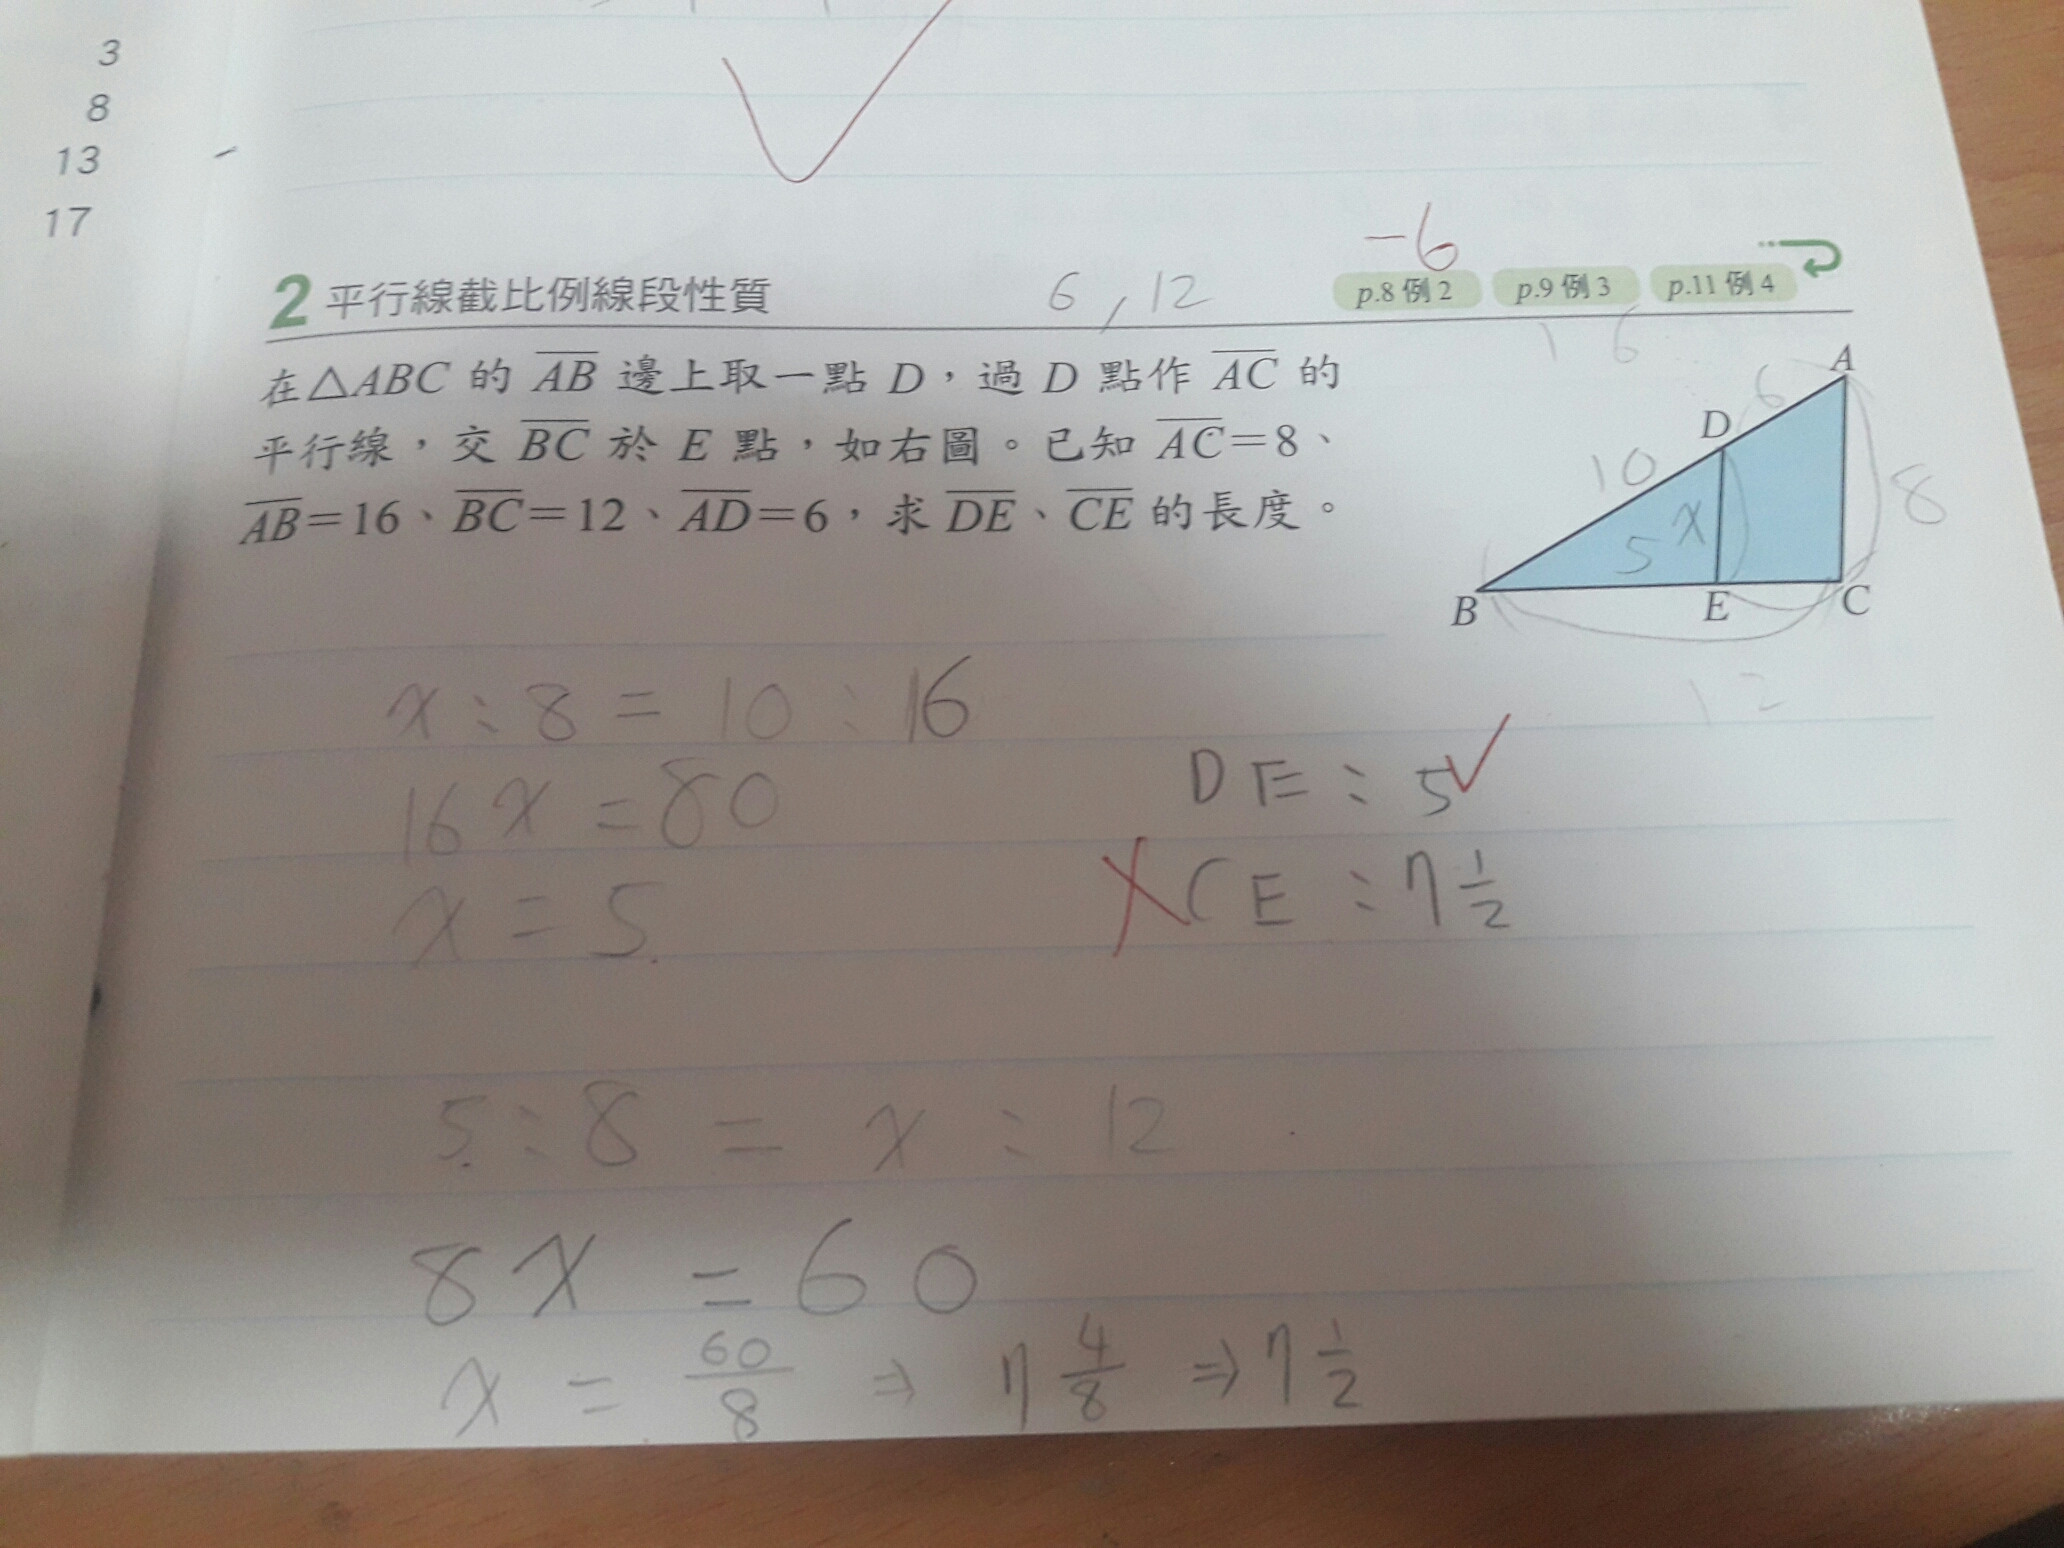 3
8
13
17
-6
2 平行線截比例線段性質 6, 12 p.8 例 2 p.9 例 3 p.11 例 4
在△ABC 的 AB 邊上取一點 D，過 D 點作 AC 的
平行線，交 BC 於 E 點，如右圖。已知 AC=8、
AB=16、BC=12、AD=6，求 DE、CE 的長度。
16
A
6
D
10
8
x
5
B
E
C
12
x : 8 = 10 : 16
16x = 80
x = 5
DE : 5
CE : 7 1/2
5 : 8 = x : 12
8x = 60
x = 60/8 ⇒ 7 4/8 ⇒ 7 1/2